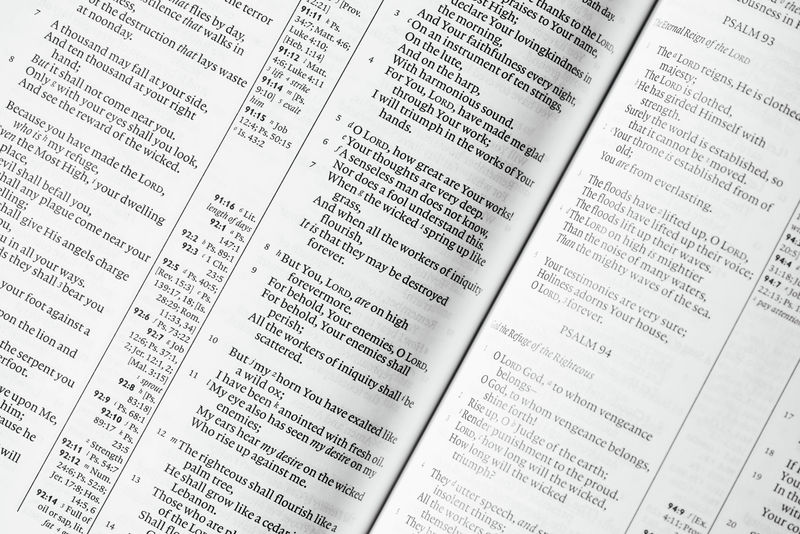 that flies by day,
terror
silence that walks in
of the destruction that lays waste
at noonday.
7 A thousand may fall at your side,
And ten thousand at your right
hand;
But it shall not come near you.
8 Only with your eyes shall you look,
And see the reward of the wicked.
Because you have made the LORD,
who is my refuge,
Even the Most High, your dwelling
place,
evil shall befall you,
shall any plague come near your
dwelling;
shall give His angels charge
you,
in all your ways.
they shall bear you
your foot against a
upon the lion and
the serpent you
underfoot.
love upon Me,
him;
because he
will
91:11
Luke 4:10;
[Heb. 1:14]
91:12 Matt.
4:6; Luke 4:11
lift strike
91:14
9:10] exalt
him
91:15 Job
12:4; Ps. 50:15
Is. 43:2
91:16 Lit.
length of days
92:1 Ps.
147:1
92:2 Ps. 89:1
92:3 1 Chr.
23:5
92:5 Ps. 40:5;
[Rev. 15:3] Ps.
139:17, 18; [Is.
28:29; Rom.
11:33, 34]
92:6 Ps. 73:22
92:7 Job
12:6; Ps. 37:1,
2; Jer. 12:1, 2;
[Mal. 3:15]
sprout
92:8 [Ps.
83:18]
92:9 Ps. 68:1
92:10 Ps.
89:17 Ps.
23:5
92:11 Ps. 54:7
92:12 Num.
24:6; Ps. 52:8;
Jer. 17:8; Hos.
14:5, 6
92:14 Full of
oil or sap, lit.
fat
thanks to the LORD,
praises to Your name,
Most High;
declare Your lovingkindness in
the morning,
3 And Your faithfulness every night,
On an instrument of ten strings,
On the lute,
And on the harp,
With harmonious sound.
4 For You, LORD, have made me glad
through Your work;
I will triumph in the works of Your
hands.
5 O LORD, how great are Your works!
Your thoughts are very deep.
6 A senseless man does not know,
Nor does a fool understand this.
7 When the wicked spring up like
grass,
And when all the workers of iniquity
flourish,
It is that they may be destroyed
forever.
8 But You, LORD, are on high
forevermore.
9 For behold, Your enemies, O LORD,
For behold, Your enemies shall
perish;
All the workers of iniquity shall be
scattered.
10 But my horn You have exalted like
a wild ox;
I have been anointed with fresh oil.
11 My eye also has seen my desire on my
enemies;
My ears hear my desire on the wicked
Who rise up against me.
12 The righteous shall flourish like a
palm tree,
He shall grow like a cedar in
Lebanon.
13 Those who are
of the LORD
Shall
14
PSALM 93
The Eternal Reign of the LORD
The LORD reigns, He is clothed
majesty;
The LORD is clothed,
He has girded Himself with
strength.
Surely the world is established, so
that it cannot be moved.
Your throne is established from of
old;
You are from everlasting.
The floods have lifted up, O LORD,
The floods have lifted up their voice;
The floods lift up their waves.
The LORD on high is mightier
Than the noise of many waters,
Than the mighty waves of the sea.
Your testimonies are very sure;
Holiness adorns Your house,
O LORD, forever.
PSALM 94
God the Refuge of the Righteous
O LORD God, to whom vengeance
belongs—
O God, to whom vengeance belongs,
shine forth!
Rise up, O Judge of the earth;
Render punishment to the proud.
LORD, how long will the wicked,
How long will the wicked
triumph?
They utter speech, and
insolent things;
All the workers
themselves
They
94:9 [Ex.
4:11; Prov.
17
18
19
20